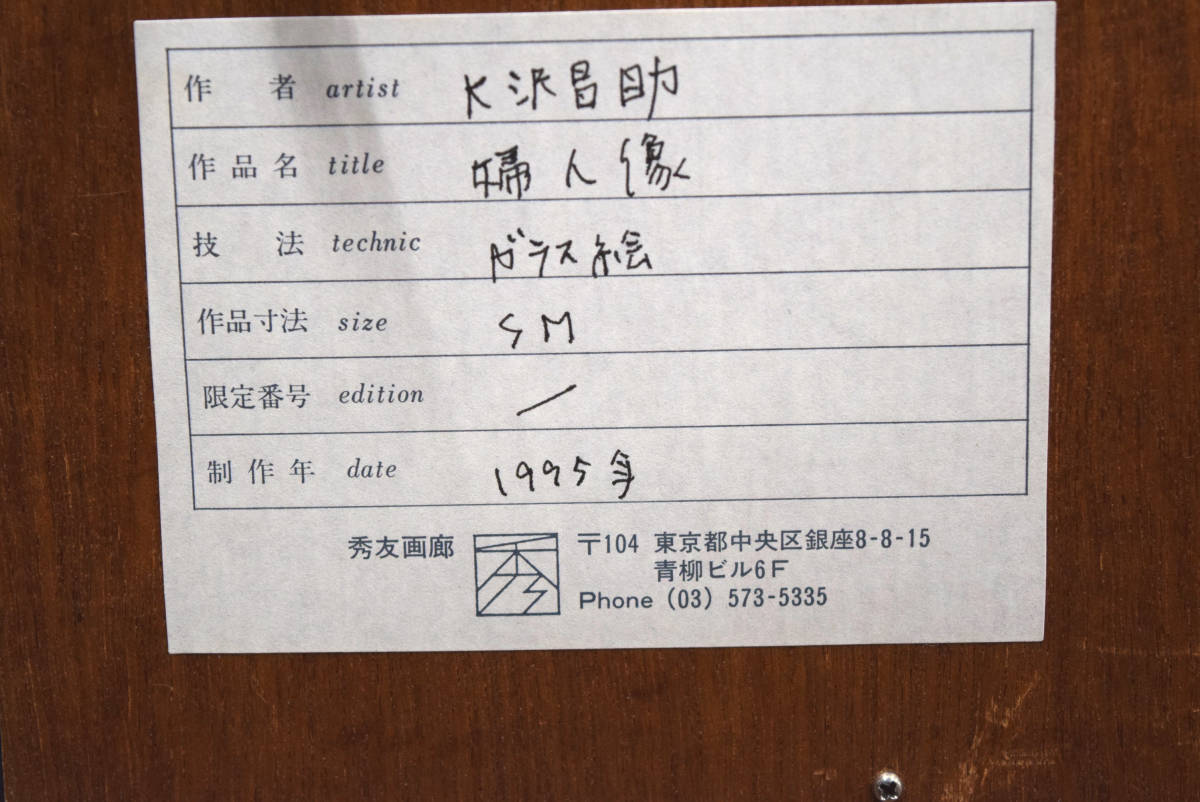 作者 artist 大沢昌助
作品名 title 婦人像
技法 technic ガラス絵
作品寸法 size SM
限定番号 edition /
制作年 date 1995年
秀友画廊 〒104 東京都中央区銀座8-8-15
青柳ビル6F
Phone (03) 573-5335